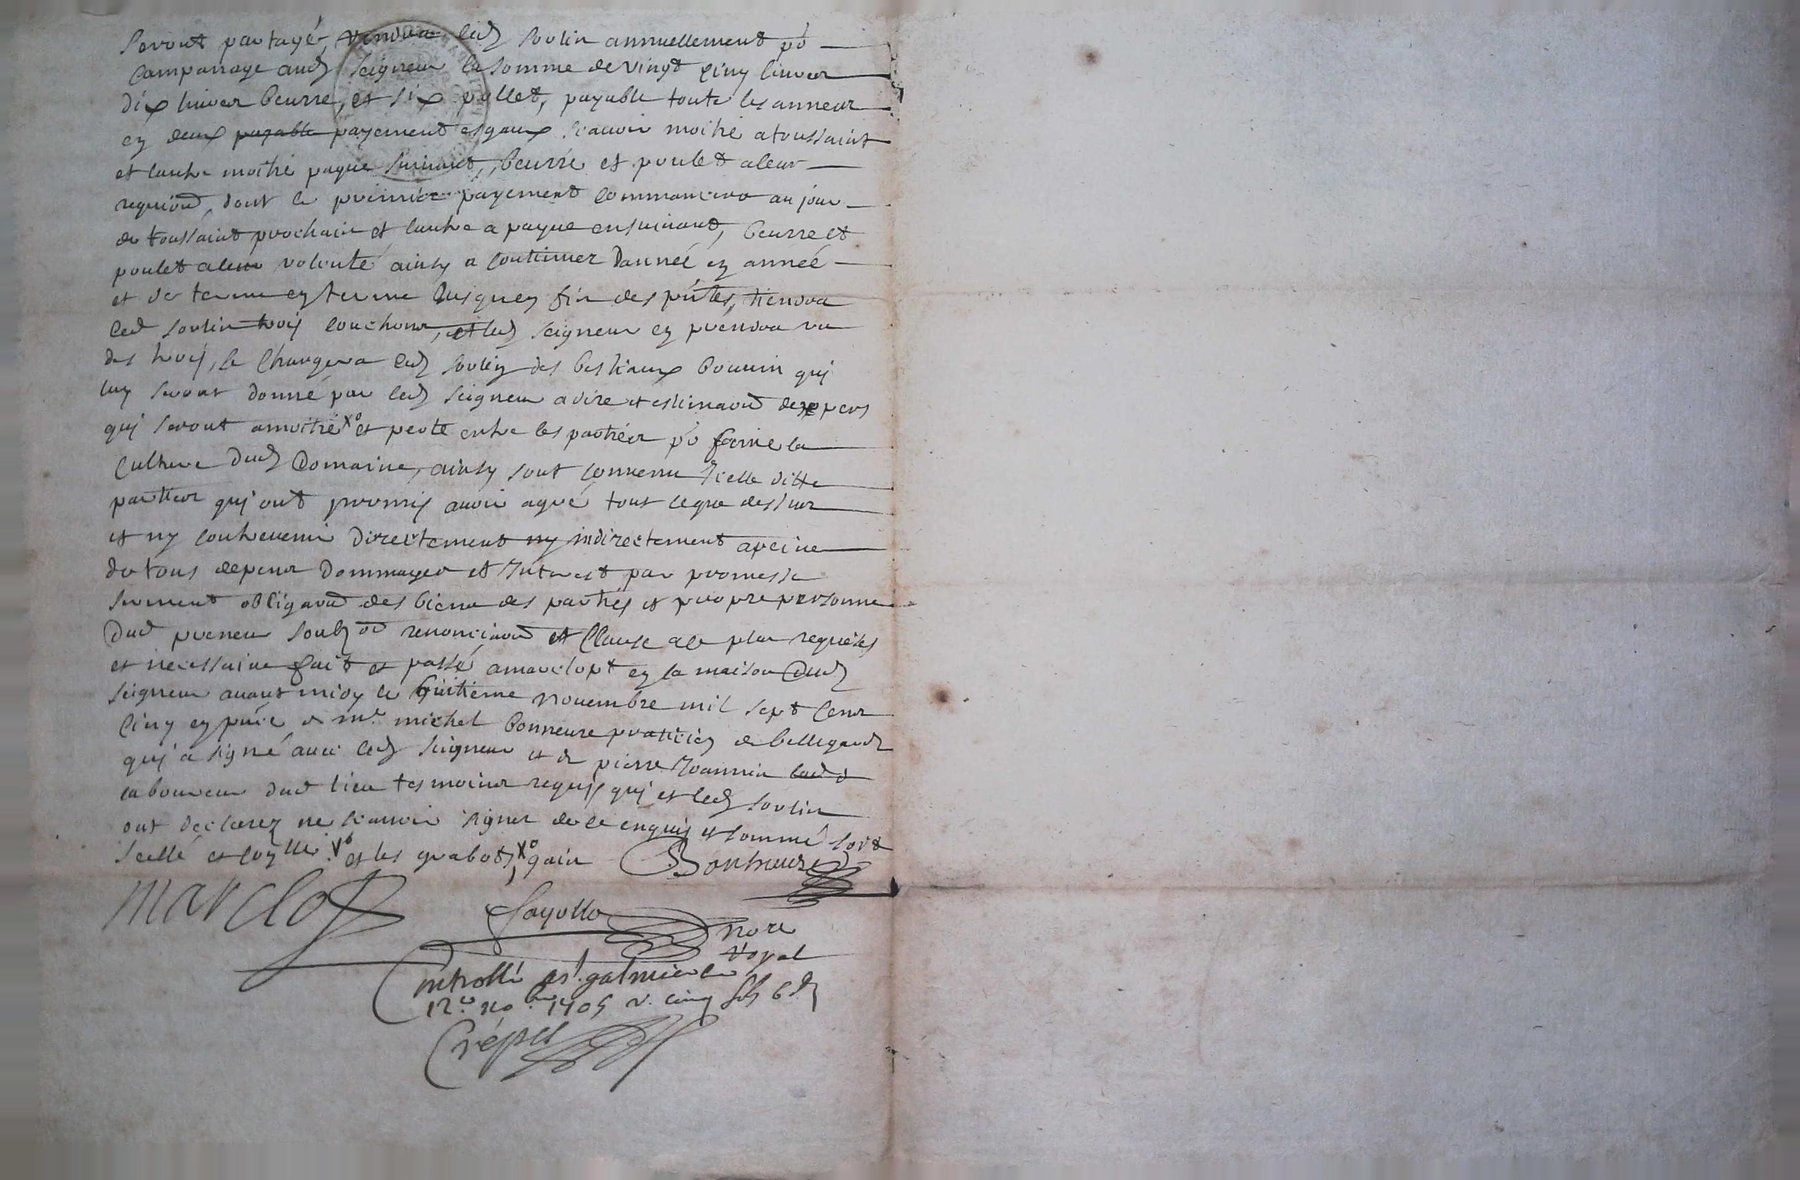 seront partagé, rendra led soulin annuellement po
campanage aud seigneur la somme de vingt cinq livres
dix livres beurre, et six pollet, payable toute les annees
en deux payable payement esgaux scauoir moitie a toussaint
et lautre moitié paque suiuant, beurre et poulet a leur
requiōn, dont le premier payement commancera au jour
de toussaint prochain et lautre a paque ensuiuant, beurre et
poulet a leur volonté ainsy a continuer dannéé en annéé
et de terme en terme jusquen fin des pntes, tiendra
led soulin trois couchons, et led seigneur en prendra un
des trois, se chargera led soulin des bestiaux bouuin qui
luy seront donné par led seigneur a dire et estimaōn dexpers
qui seront a moitié xo et perte entre les partiées po faire la
culture dud domaine, ainsy sont conuenu icelle ditte
parties qui ont promis auoir agréé tout ceque dessus
et ny contreuenir directement ny indirectement a peine
de tous depens dommages et interest par promesse
serment obligaōn des biens des parties et propre personne
dud preneur soubz oū renonciaōn et clause a ce plus requises
et necessaire fait et passé a marclopt en la maison dud
seigneur auant midy le huitieme nouembre mil sept cens
cinq en pnce de me michel bonneure praticien de bellegarde
qui a signé auec led seigneur et de pierre Joannin
laboureur dud lieu tesmoins requis qui et led soulin
ont declarez ne scauoir signer de ce enquis et sommé soit
scellé et xo et les xo gain Bonheure
marclopt
fayolle
nore
royal
Controllé a st galmier le
12e nobre 1705 r. cinq sols 6 d
Crépet